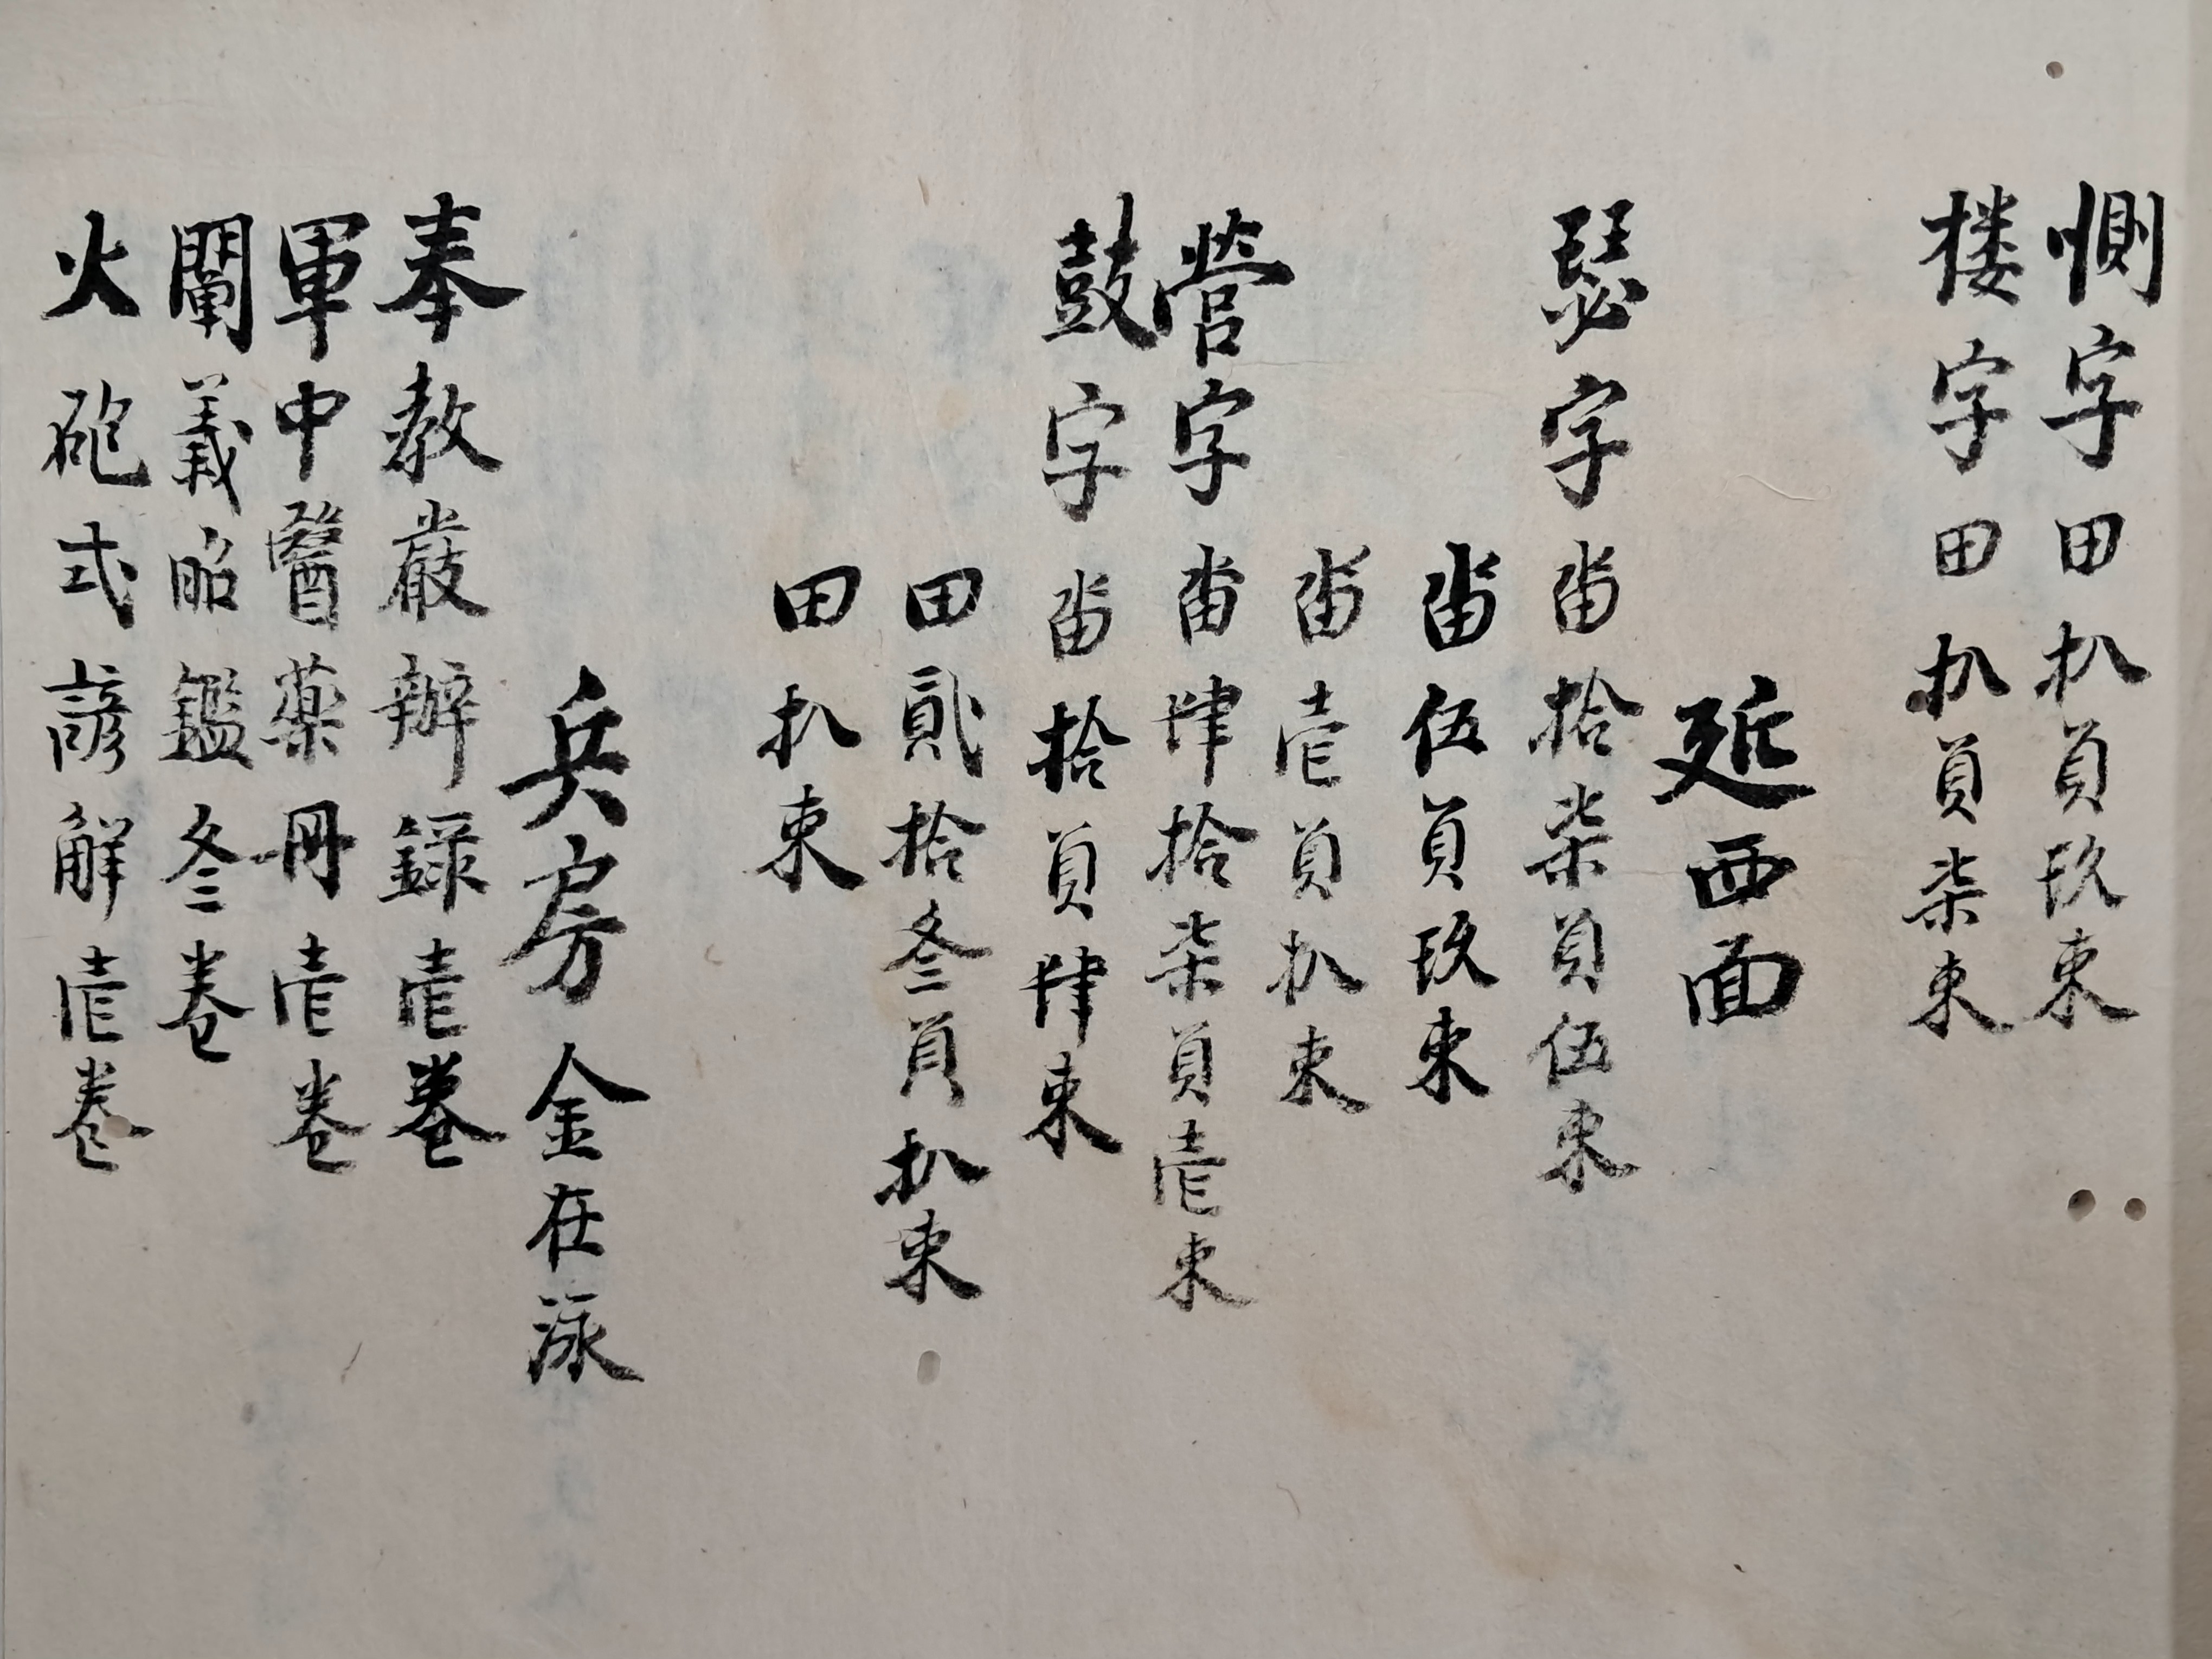 惻字田扒負玖束
楼字田扒負柒束
延西面
瑟字畓拾柒負伍束
畓伍負玖束
畓壱負扒束
營字畓肆拾柒負壱束
鼓字畓拾負肆束
田貳拾叄負扒束
田扒束
兵房金在泳
奉教嚴辦録壱巻
軍中醫薬冊壱巻
闡義昭鑑叄巻
火砲式諺解壱巻